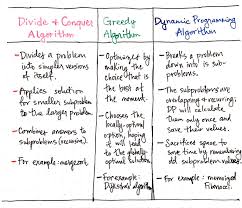 Divide & Conquer
Algorithm
- Divides a problem
into simpler versions
of itself.
- Applies solution
for smaller subproblem
to the larger problem
- Combines answers to
subproblems (recursive)
- For example: mergesort
Greedy
Algorithm
- Optimizes by
making the
choice that is
the best at
the moment.
- Chooses the
locally-optimal
option, hoping
it will lead
to the globally-
optimal
solution
- For example:
Dijkstra's algorithm
Dynamic Programming
Algorithm
- Breaks a problem
down into subproblems.
- The subproblems are
overlapping & recurring;
DP will calculate
them only once and
save their values.
- Sacrifices space to
save time by remembering
old subproblem values.
- For example: memoized
Fibonacci.